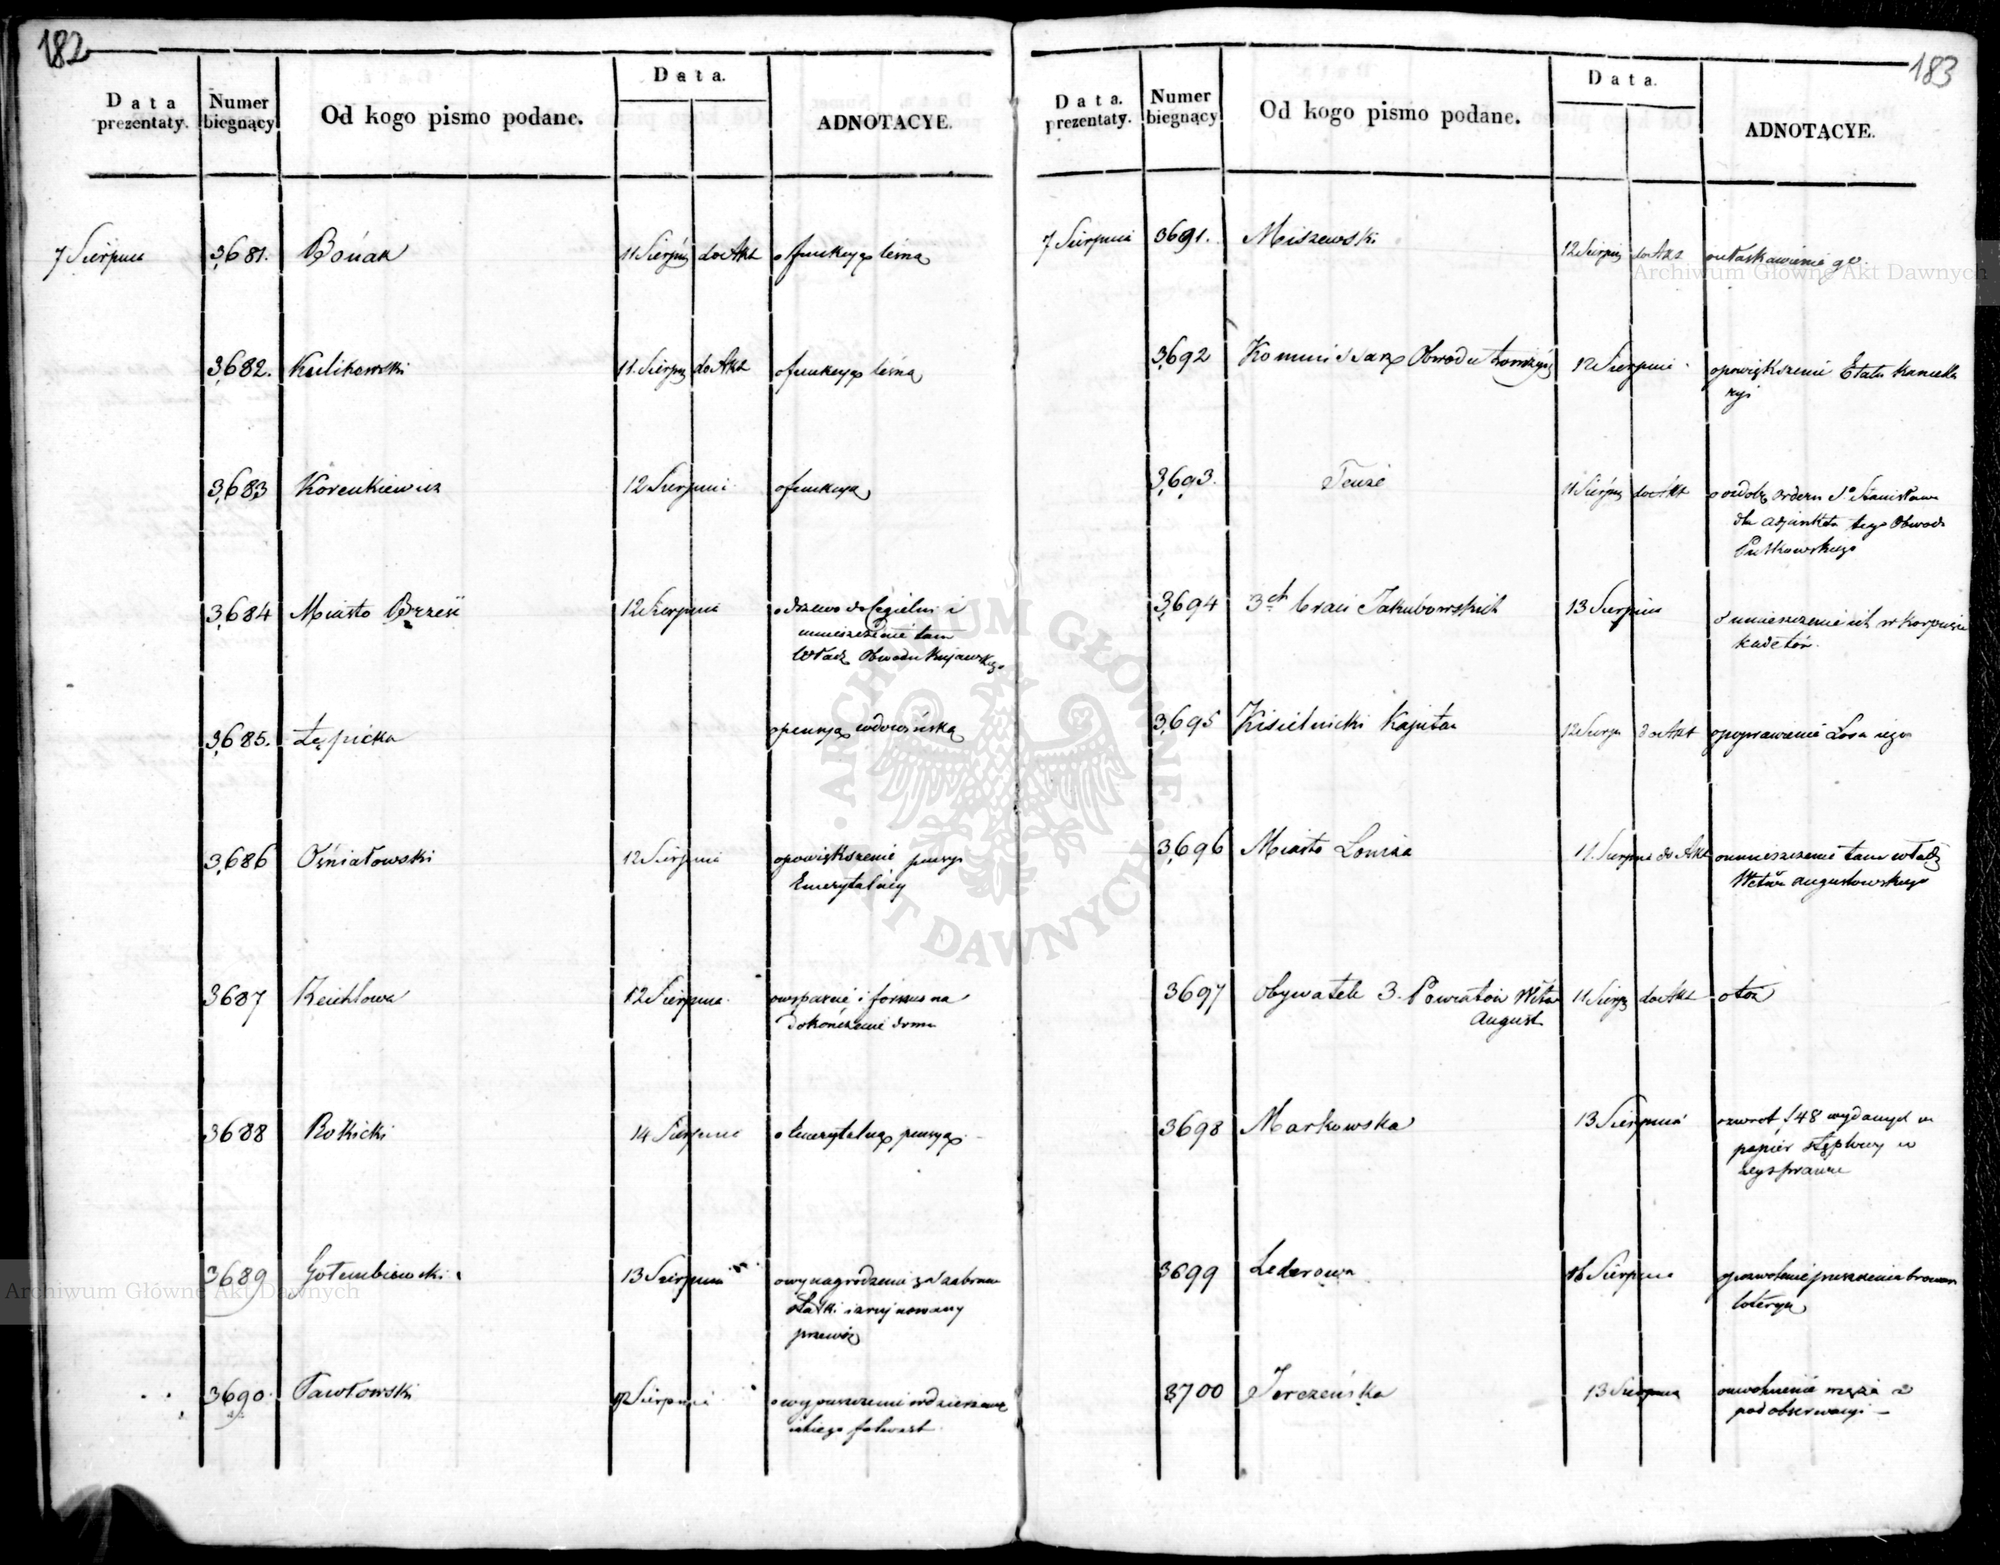 182
Data prezentaty.
Numer biegnący
Od kogo pismo podane.
Data.
ADNOTACYE.
7 Sierpnia 3681. Bońak 11 Sierpn do Akt o funkcyą leśną
3682. Kulikowski 11. Sierpn do Akt o funkcyą leśną
3683 Korenkiewicz 12 Sierpnia o funkcyą
3684 Miasto Brześć 12 Sierpnia o drzewo do Cegielni i
umieszczenie tam
Władz Obwodu Kujawskiego
3685. Łępicka o pensyą wdowińską
3686 Ośniałowski 12 Sierpnia o powiększenie pensyi
Emerytalnéy
3687 Keichlowa 12 Sierpnia o wsparcie i forszus na
dokończenie domu
3688 Rokicki 14 Sierpnia o Emerytalną pensyą
3689 Gołembiowski 13 Sierpnia o wynagrodzenie za zabrane
statki i zrujnowany
przewóz
3690 Pawłowski 12 Sierpnia o wypuszczenie w dzierżawę
folwark
183
Data. prezentaty.
Numer biegnący
Od kogo pismo podane.
Data.
ADNOTACYE.
7 Sierpnia 3691. Miszewski 12 Sierpn do Akt o ułaskawienie go
3692 Kommissarz Obwodu Łomżyń 12 Sierpnia o powiększenie Etatu Kancella
ryi
3693. Tenże 11 Sierpn do Akt o ozdobę orderu Sgo Stanisława
dla adjunkta tego Obwodu
Putkowskiego
3694 3ch braci Jakubowskich 13 Sierpnia o umieszczenie ich w Korpusie
kadetów
3695 Kisielnicki Kapitan 12 Sierpn do Akt o poprawienie Losu iego
3696 Miasto Łomża 11. Sierpnia do Akt o umieszczenie tam władz
Wctwa augustowskiego
3697 Obywatele 3. Powiatów Wctwa
August 11 Sierpn do Akt o toż
3698 Markowska 13 Sierpnia o zwrot f 48 wydanych na
papier stęplowy w
iey sprawie
3699 Lederowa 16 Sierpnia o pozwolenie puszczenia browaru
loteryą
3700 Jerczeńska 13 Sierpnia o uwolnienie męża z
pod obserwacyi —
Archiwum Główne Akt Dawnych
Archiwum Główne Akt Dawnych
ARCHIWUM GŁÓWNE AKT DAWNYCH